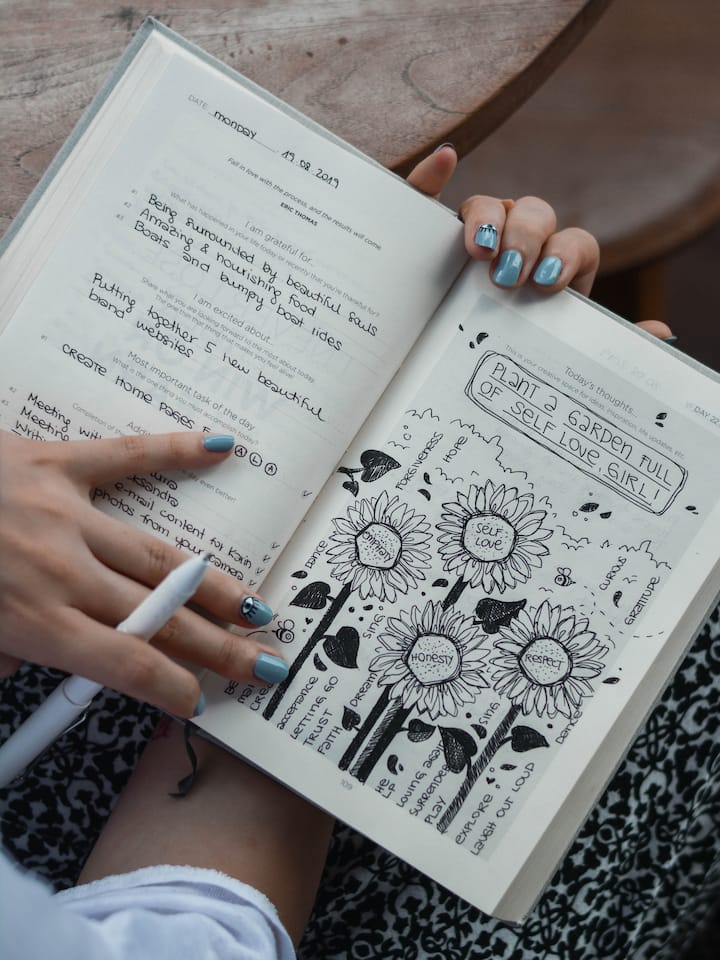 DATE monday 19.08.2019
Fall in love with the process, and the results will come.
ERIC THOMAS
I am grateful for...
What has happened in your life today or recently that you're thankful for?
#1 Being surrounded by beautiful souls
#2 Amazing & nourishing food
#3 Boats and bumpy boat rides
I am excited about...
Share what you are looking forward to the most about today.
The one that thing that makes you feel alive!
Putting together 5 new beautiful
brand websites
Most important task of the day
What is the one thing you must accomplish today?
#1 create Home Pages
Completion of
day even better!
#2 Meeting with
#3 Meeting
e-mail content for Karin
photos from your camera
109
DAY 22
Today's thoughts...
This is your creative space for ideas, inspiration, life updates, etc.
PLANT a GARDEN FULL
OF SELF LOVE, GIRL!
FORGIVENESS
HOPE
SELF
LOVE
CURIOUS
GRATITUDE
DANCE
SING
HONESTY
RESPECT
DREAM
acceptance
LETTING GO
TRUST
FAITH
HELP
LOVING
SURRENDER
PLAY
SING
DANCE
EXPLORE
LAUGH OUT LOUD